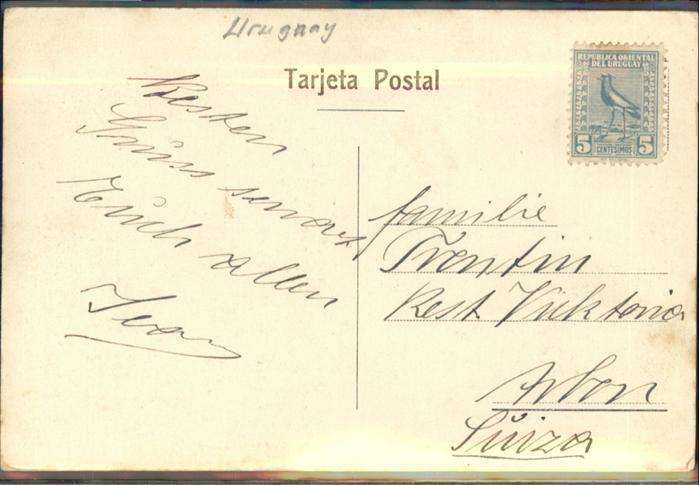 Uruguay
Tarjeta Postal
REPUBLICA ORIENTAL
DEL URUGUAY
5 CENTESIMOS 5
Besten
Gruss sendet
Euch allen
Ivan
familie
Trentin
Rest. Vicktoria
Arbon
Suiza